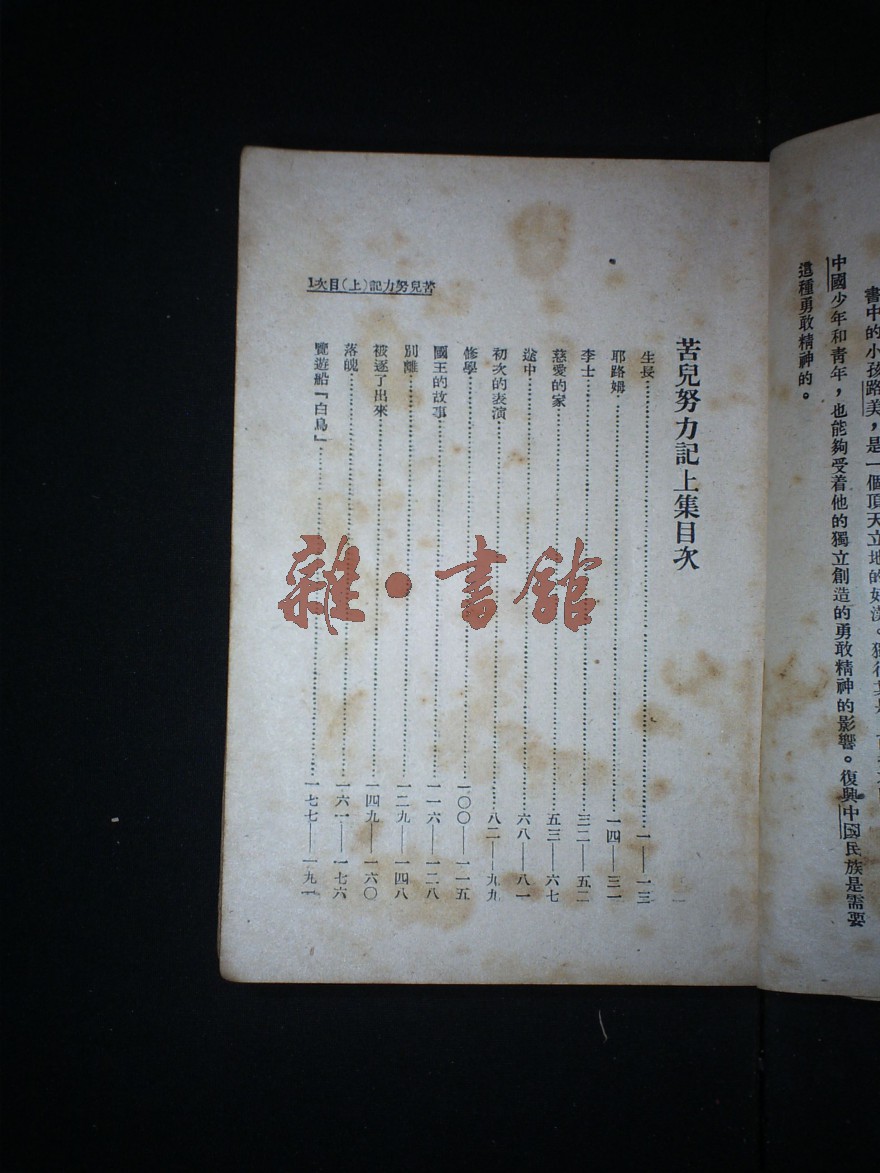 書中的小孩路美，是一個頂天立地的好漢。
中國少年和青年，也能夠受着他的獨立創造的勇敢精神的影響。復興中國民族是需要
這種勇敢精神的。
苦兒努力記（上）目次1
苦兒努力記上集目次
生長……一——一三
耶路姆……一四——三一
李士……三二——五二
慈愛的家……五三——六七
途中……六八——八一
初次的表演……八二——九九
修學……一〇〇——一一五
國王的故事……一一六——一二八
別離……一二九——一四八
被逐了出來……一四九——一六〇
落魄……一六一——一七六
覽遊船『白鳥』……一七七——一九一
雜·書館